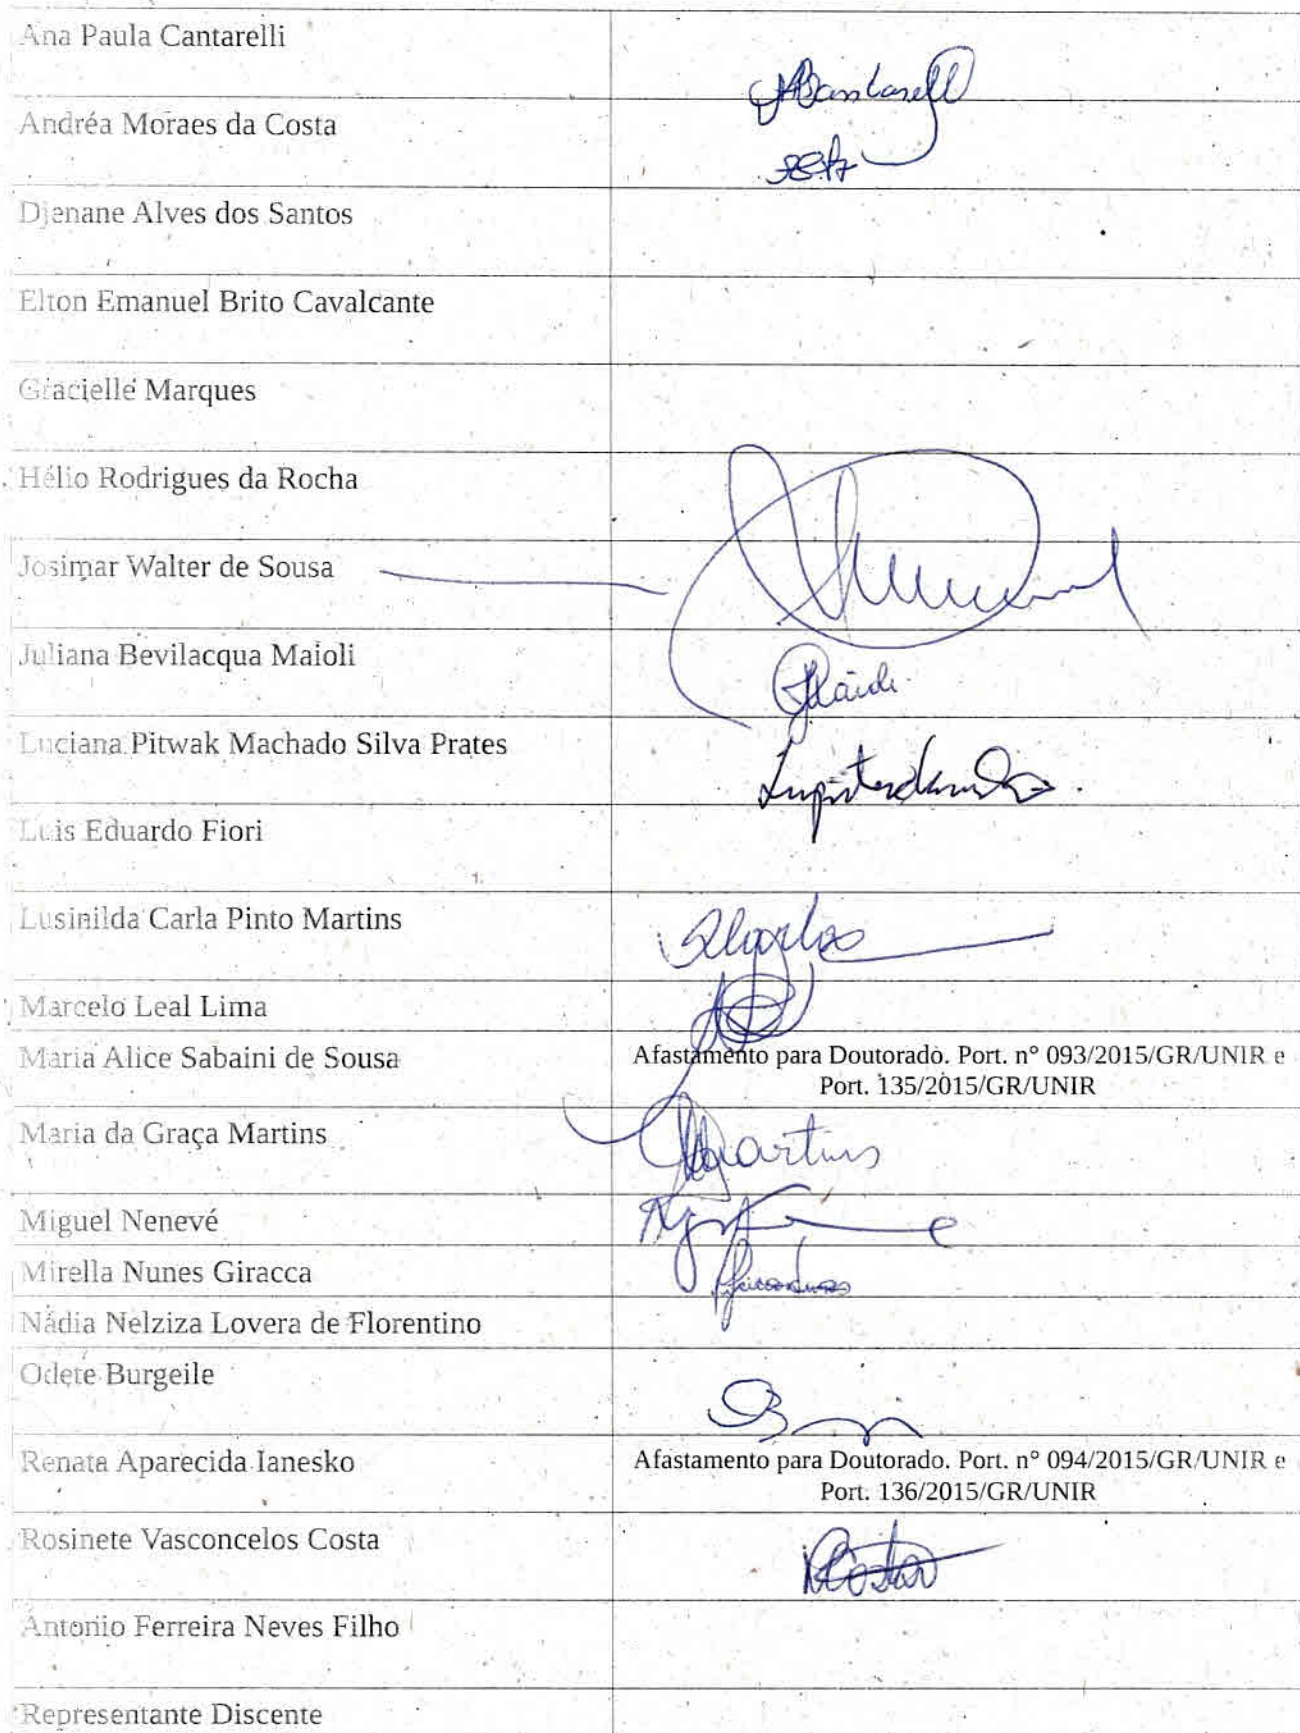 Ana Paula Cantarelli
Andréa Moraes da Costa
Djenane Alves dos Santos
Elton Emanuel Brito Cavalcante
Gracielle Marques
Hélio Rodrigues da Rocha
Josimar Walter de Sousa
Juliana Bevilacqua Maioli
Luciana Pitwak Machado Silva Prates
Luis Eduardo Fiori
Lusinilda Carla Pinto Martins
Marcelo Leal Lima
Maria Alice Sabaini de Sousa
Afastamento para Doutorado. Port. nº 093/2015/GR/UNIR e
Port. 135/2015/GR/UNIR
Maria da Graça Martins
Martins
Miguel Nenevé
Mirella Nunes Giracca
Nádia Nelziza Lovera de Florentino
Odete Burgeile
Renata Aparecida Ianesko
Afastamento para Doutorado. Port. nº 094/2015/GR/UNIR e
Port. 136/2015/GR/UNIR
Rosinete Vasconcelos Costa
Antonio Ferreira Neves Filho
Representante Discente